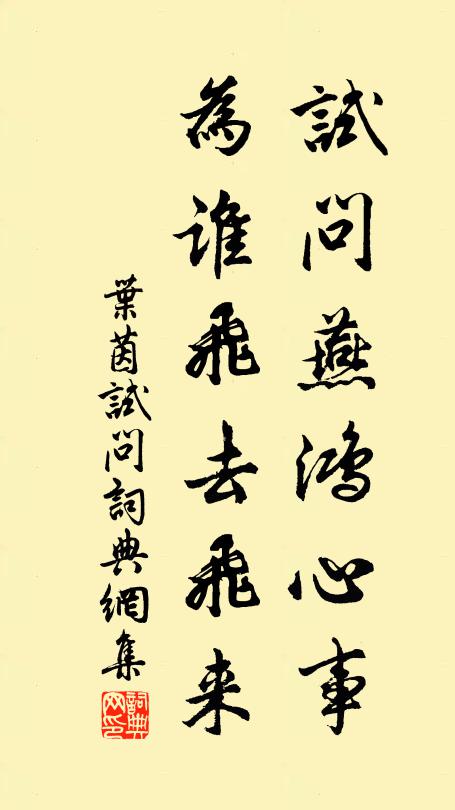 試問燕鴻心事
為誰飛去飛来
葉茵試問詞典網集
詞典網印